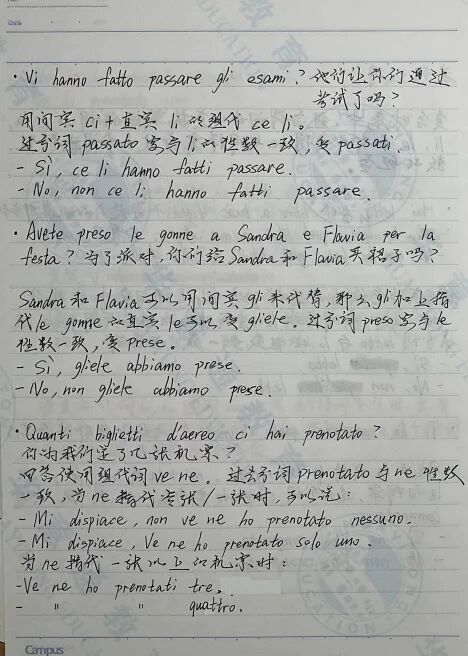 Date
· Vi hanno fatto passare gli esami? 他们让你们通过
考试了吗?
用间宾 ci + 直宾 li 的组代 ce li。
过分词 passato 需与 li 的性数一致,变 passati.
- Sì, ce li hanno fatti passare.
- No, non ce li hanno fatti passare.
· Avete preso le gonne a Sandra e Flavia per la
festa? 为了派对,你们给Sandra和Flavia买裙子吗?
Sandra 和 Flavia 可以用间宾 gli 来代替,那么 gli 加上指
代 le gonne 的直宾 le 可以变 gliele. 过分词 preso 需与 le
性数一致,变 prese。
- Sì, gliele abbiamo prese.
- No, non gliele abbiamo prese.
· Quanti biglietti d'aereo ci hai prenotato?
你为我们定了几张机票?
回答使用组代词 ve ne. 过去分词 prenotato 与 ne 性数
一致,当 ne 指代零张/一张时,可以说:
- Mi dispiace, non ve ne ho prenotato nessuno.
- Mi dispiace, Ve ne ho prenotato solo uno.
当 ne 指代一张以上的机票时:
- Ve ne ho prenotati tre.
- " " quattro.
Campus